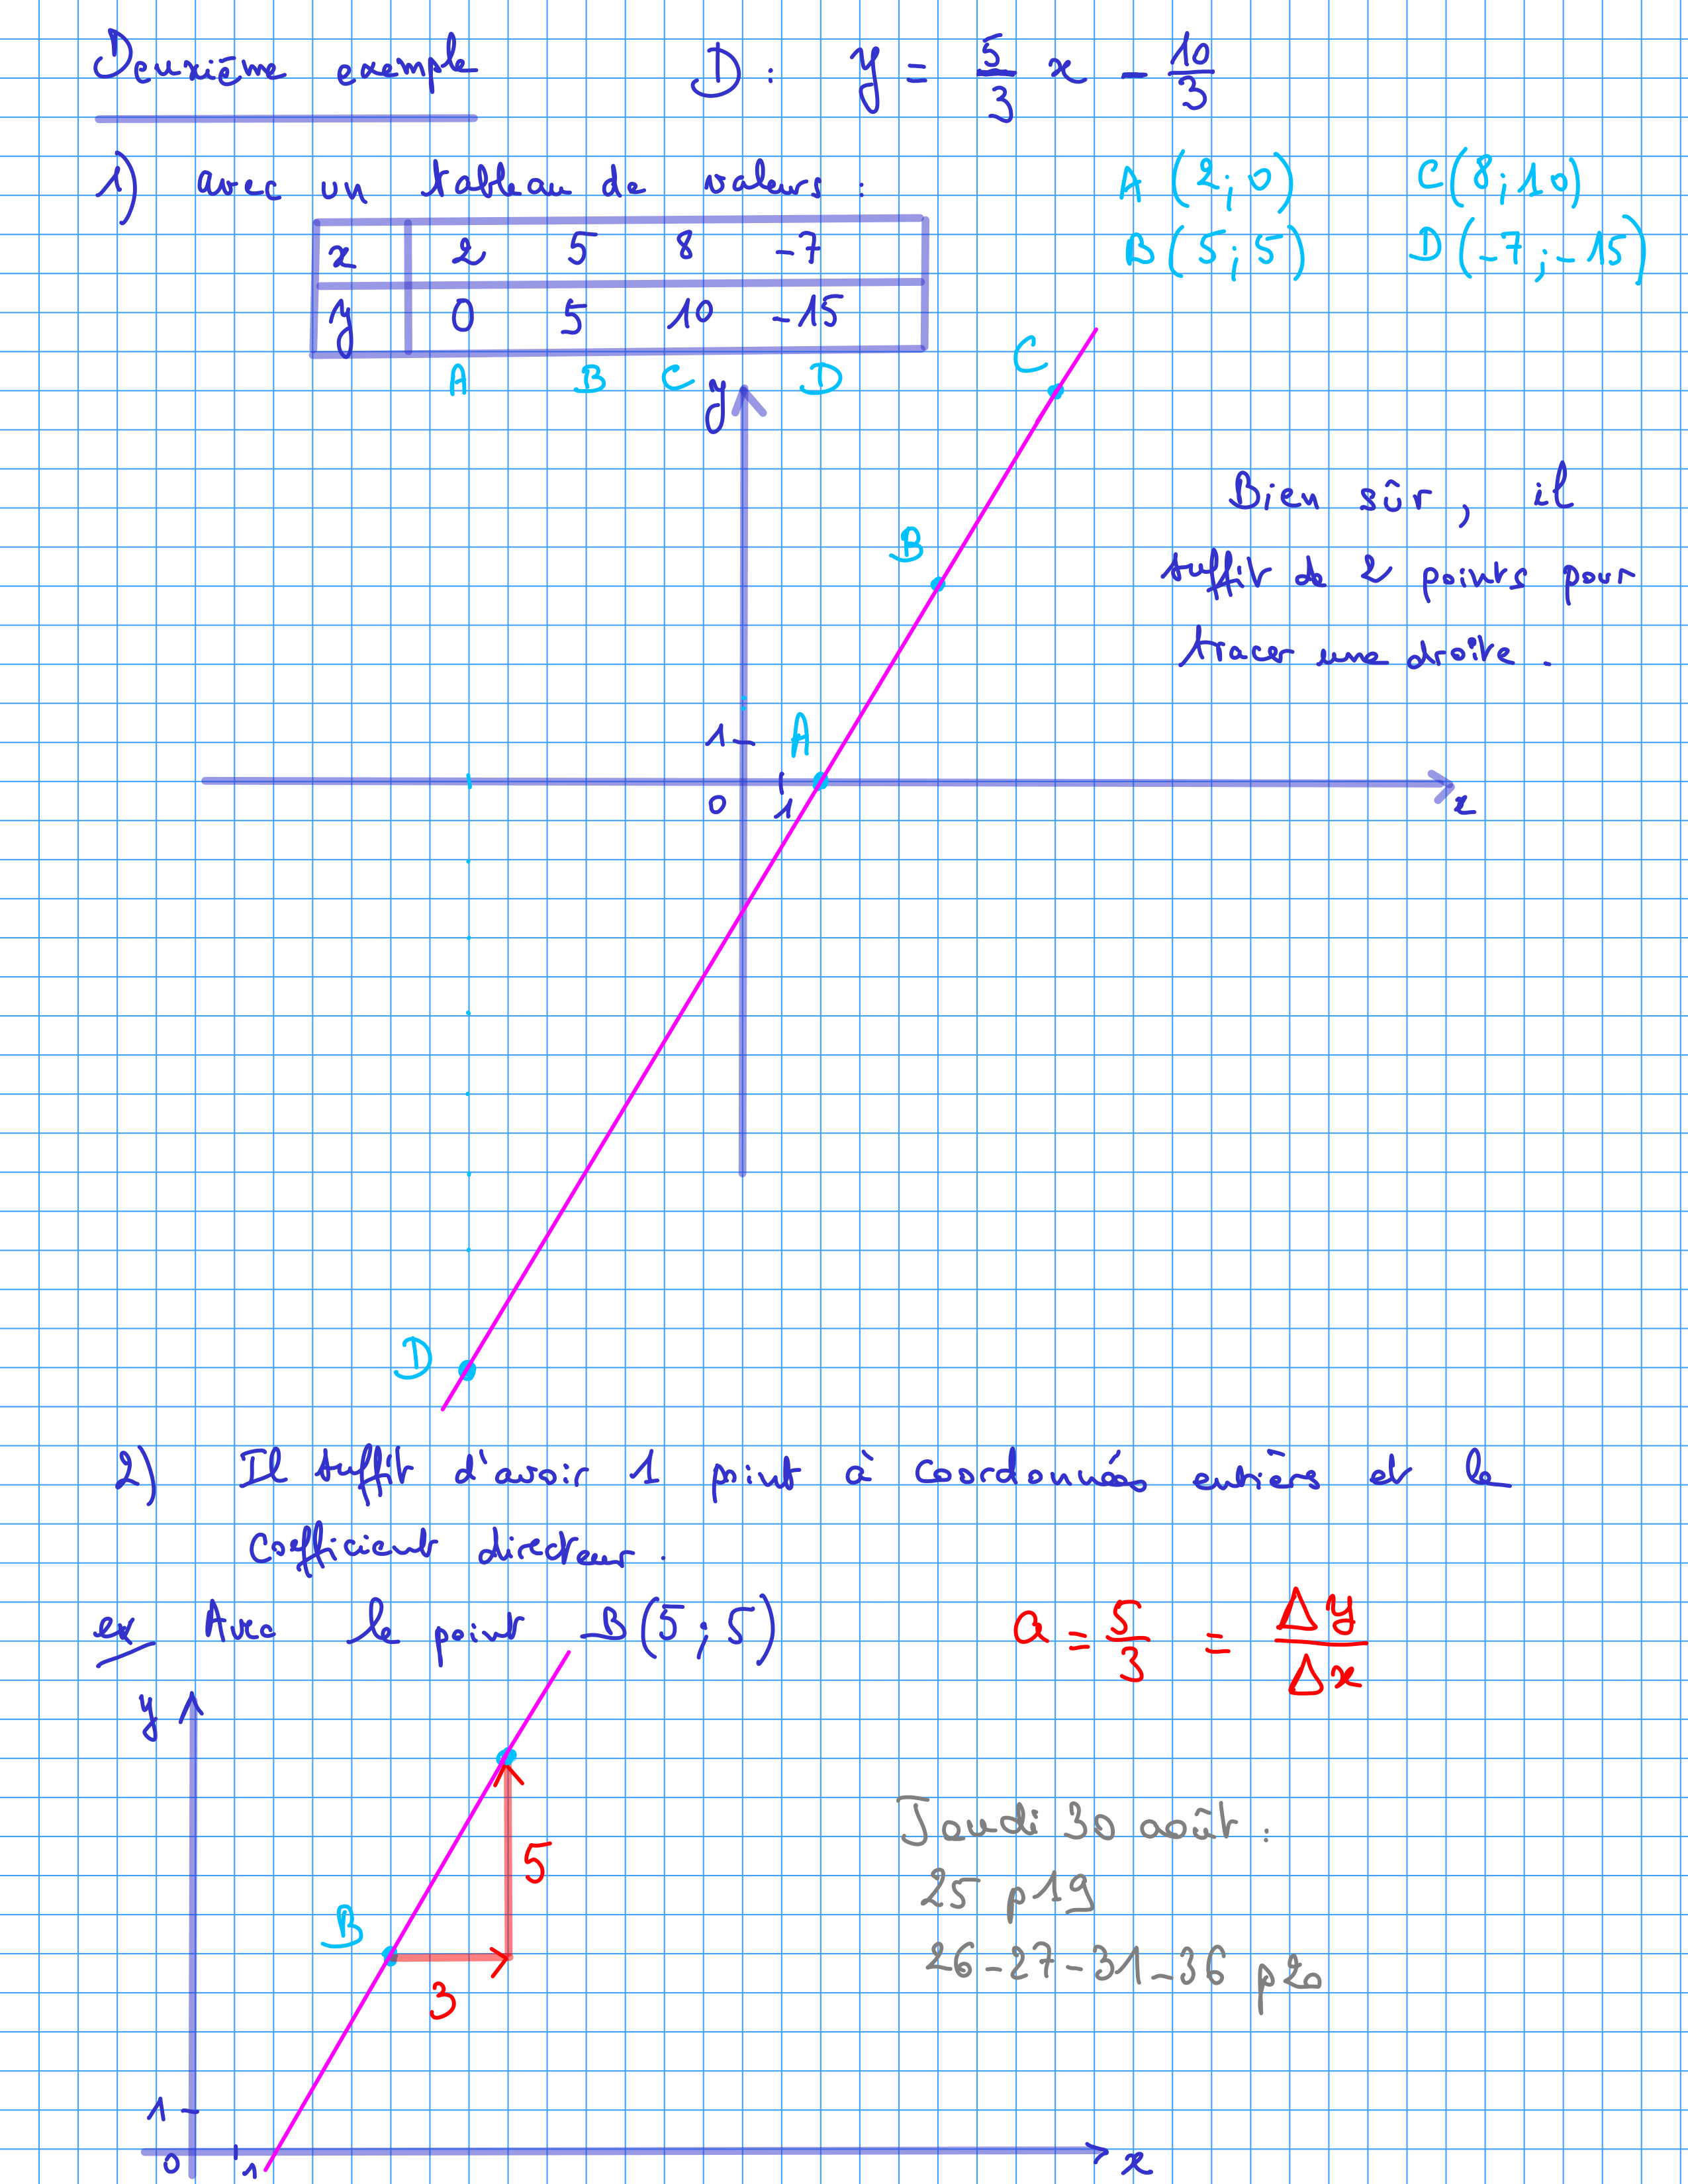 Deuxième exemple D : y = 5/3 x - 10/3
1) avec un tableau de valeurs :
A (2 ; 0) C (8 ; 10)
B (5 ; 5) D (-7 ; -15)
x 2 5 8 -7
y 0 5 10 -15
A B C D
y
C
Bien sûr, il
suffit de 2 points pour
tracer une droite.
B
A
1
0 1 x
D
2) Il suffit d'avoir 1 point à coordonnées entières et le
coefficient directeur.
ex Avec le point B(5 ; 5) a = 5/3 = Δy/Δx
y
Jeudi 30 août :
5
25 p19
B
26-27-31-36 p20
3
1
0 1 x